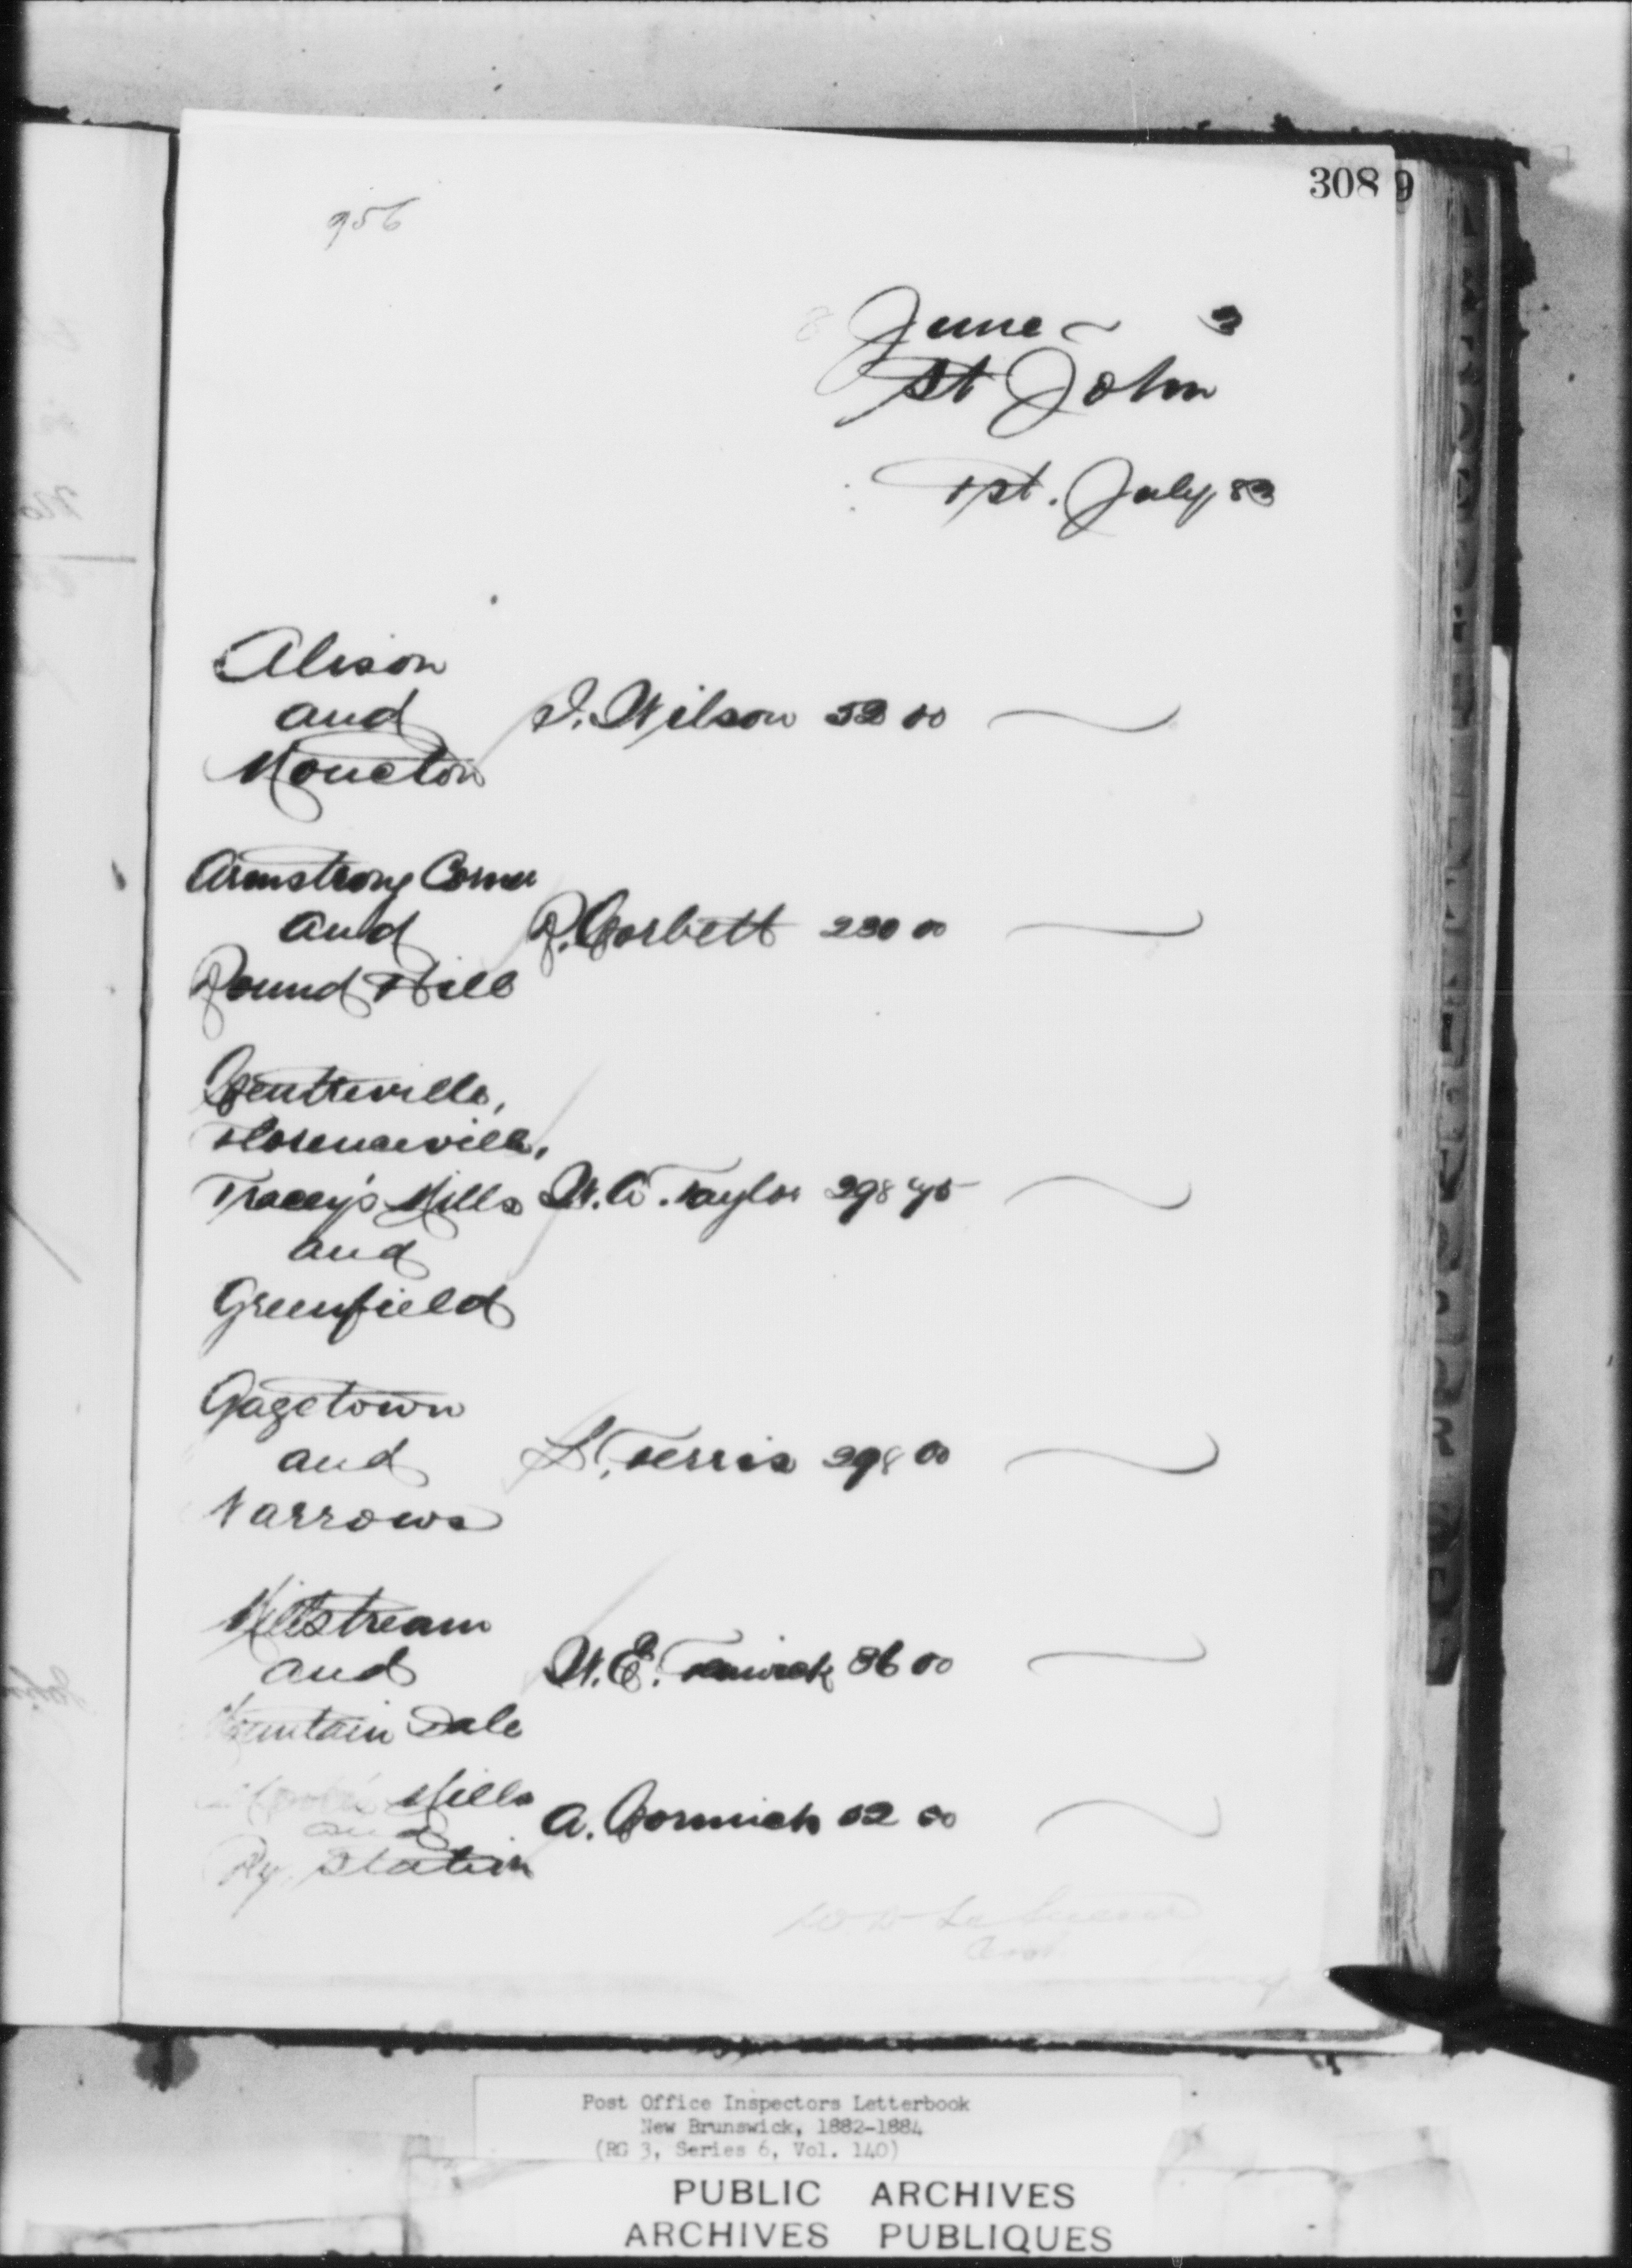 308 9
956
June 3
St John
1st. July, 83
Alison
and J. Wilson 52 00
Moncton
Armstrong Corner
and R. Corbett 230 00
Round Hill
Centreville,
Florenceville,
Tracey's Mills W. A. Taylor 298 75
and
Greenfield
Gagetown
and L. Ferris 298 00
Narrows
Millstream
and W. E. Fenwick 86 00
Mountain Dale
Mills
and A. Cormick 52 00
Ry. Station
Post Office Inspectors Letterbook
New Brunswick, 1882-1884
(RG 3, Series 6, Vol. 140)
PUBLIC ARCHIVES
ARCHIVES PUBLIQUES